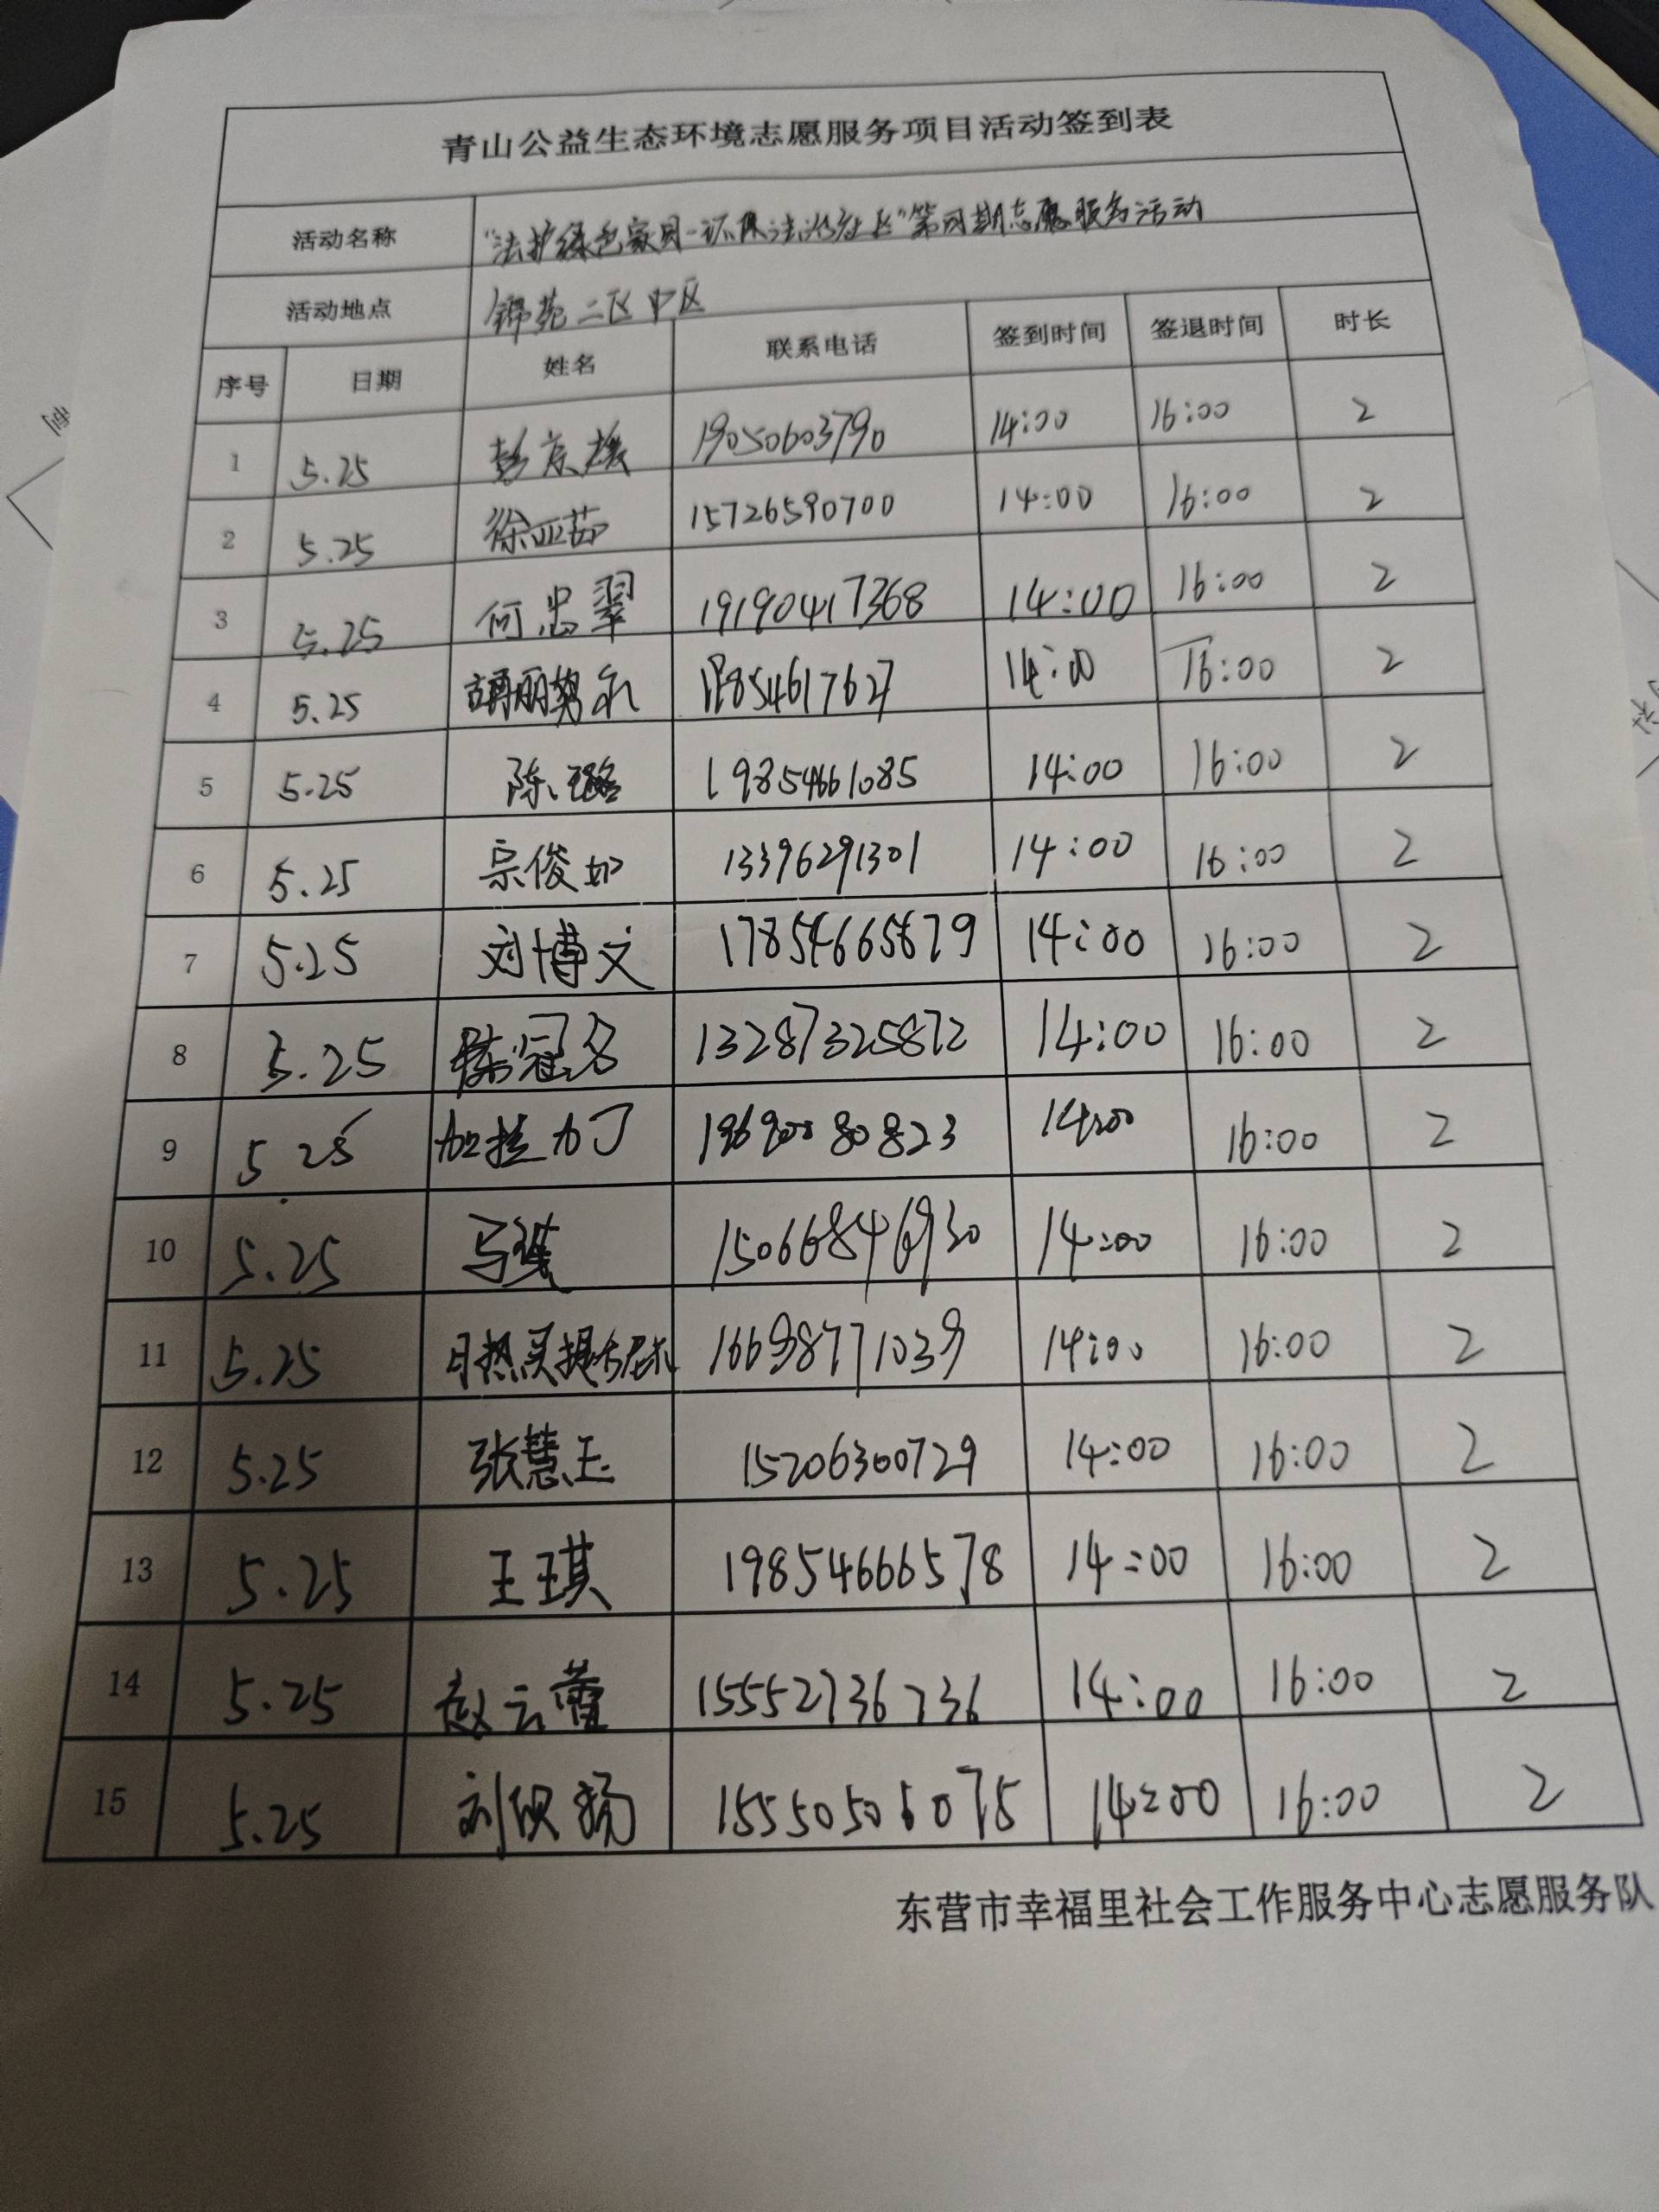 青山公益生态环境志愿服务项目活动签到表
活动名称 "法护绿色家园-环保法治社区"第四期志愿服务活动
活动地点 锦苑二区中区
序号 日期 姓名 联系电话 签到时间 签退时间 时长
1 5.25 彭京 19050603790 14:00 16:00 2
2 5.25 徐亚茹 15726590700 14:00 16:00 2
3 5.25 何忠翠 19190417368 14:00 16:00 2
4 5.25 胡丽努尔 19854617627 14:00 16:00 2
5 5.25 陈璐 19854661085 14:00 16:00 2
6 5.25 宗俊如 13396291301 14:00 16:00 2
7 5.25 刘博文 17854665679 14:00 16:00 2
8 5.25 陈冠名 13287325872 14:00 16:00 2
9 5.25 加拉力丁 19690080823 14:00 16:00 2
10 5.25 马 15066846930 14:00 16:00 2
11 5.25 日热买提 16698771039 14:00 16:00 2
12 5.25 张慧玉 15206300729 14:00 16:00 2
13 5.25 王琪 19854666578 14:00 16:00 2
14 5.25 赵云蕾 15552736736 14:00 16:00 2
15 5.25 刘 扬 15550506075 14:00 16:00 2
东营市幸福里社会工作服务中心志愿服务队